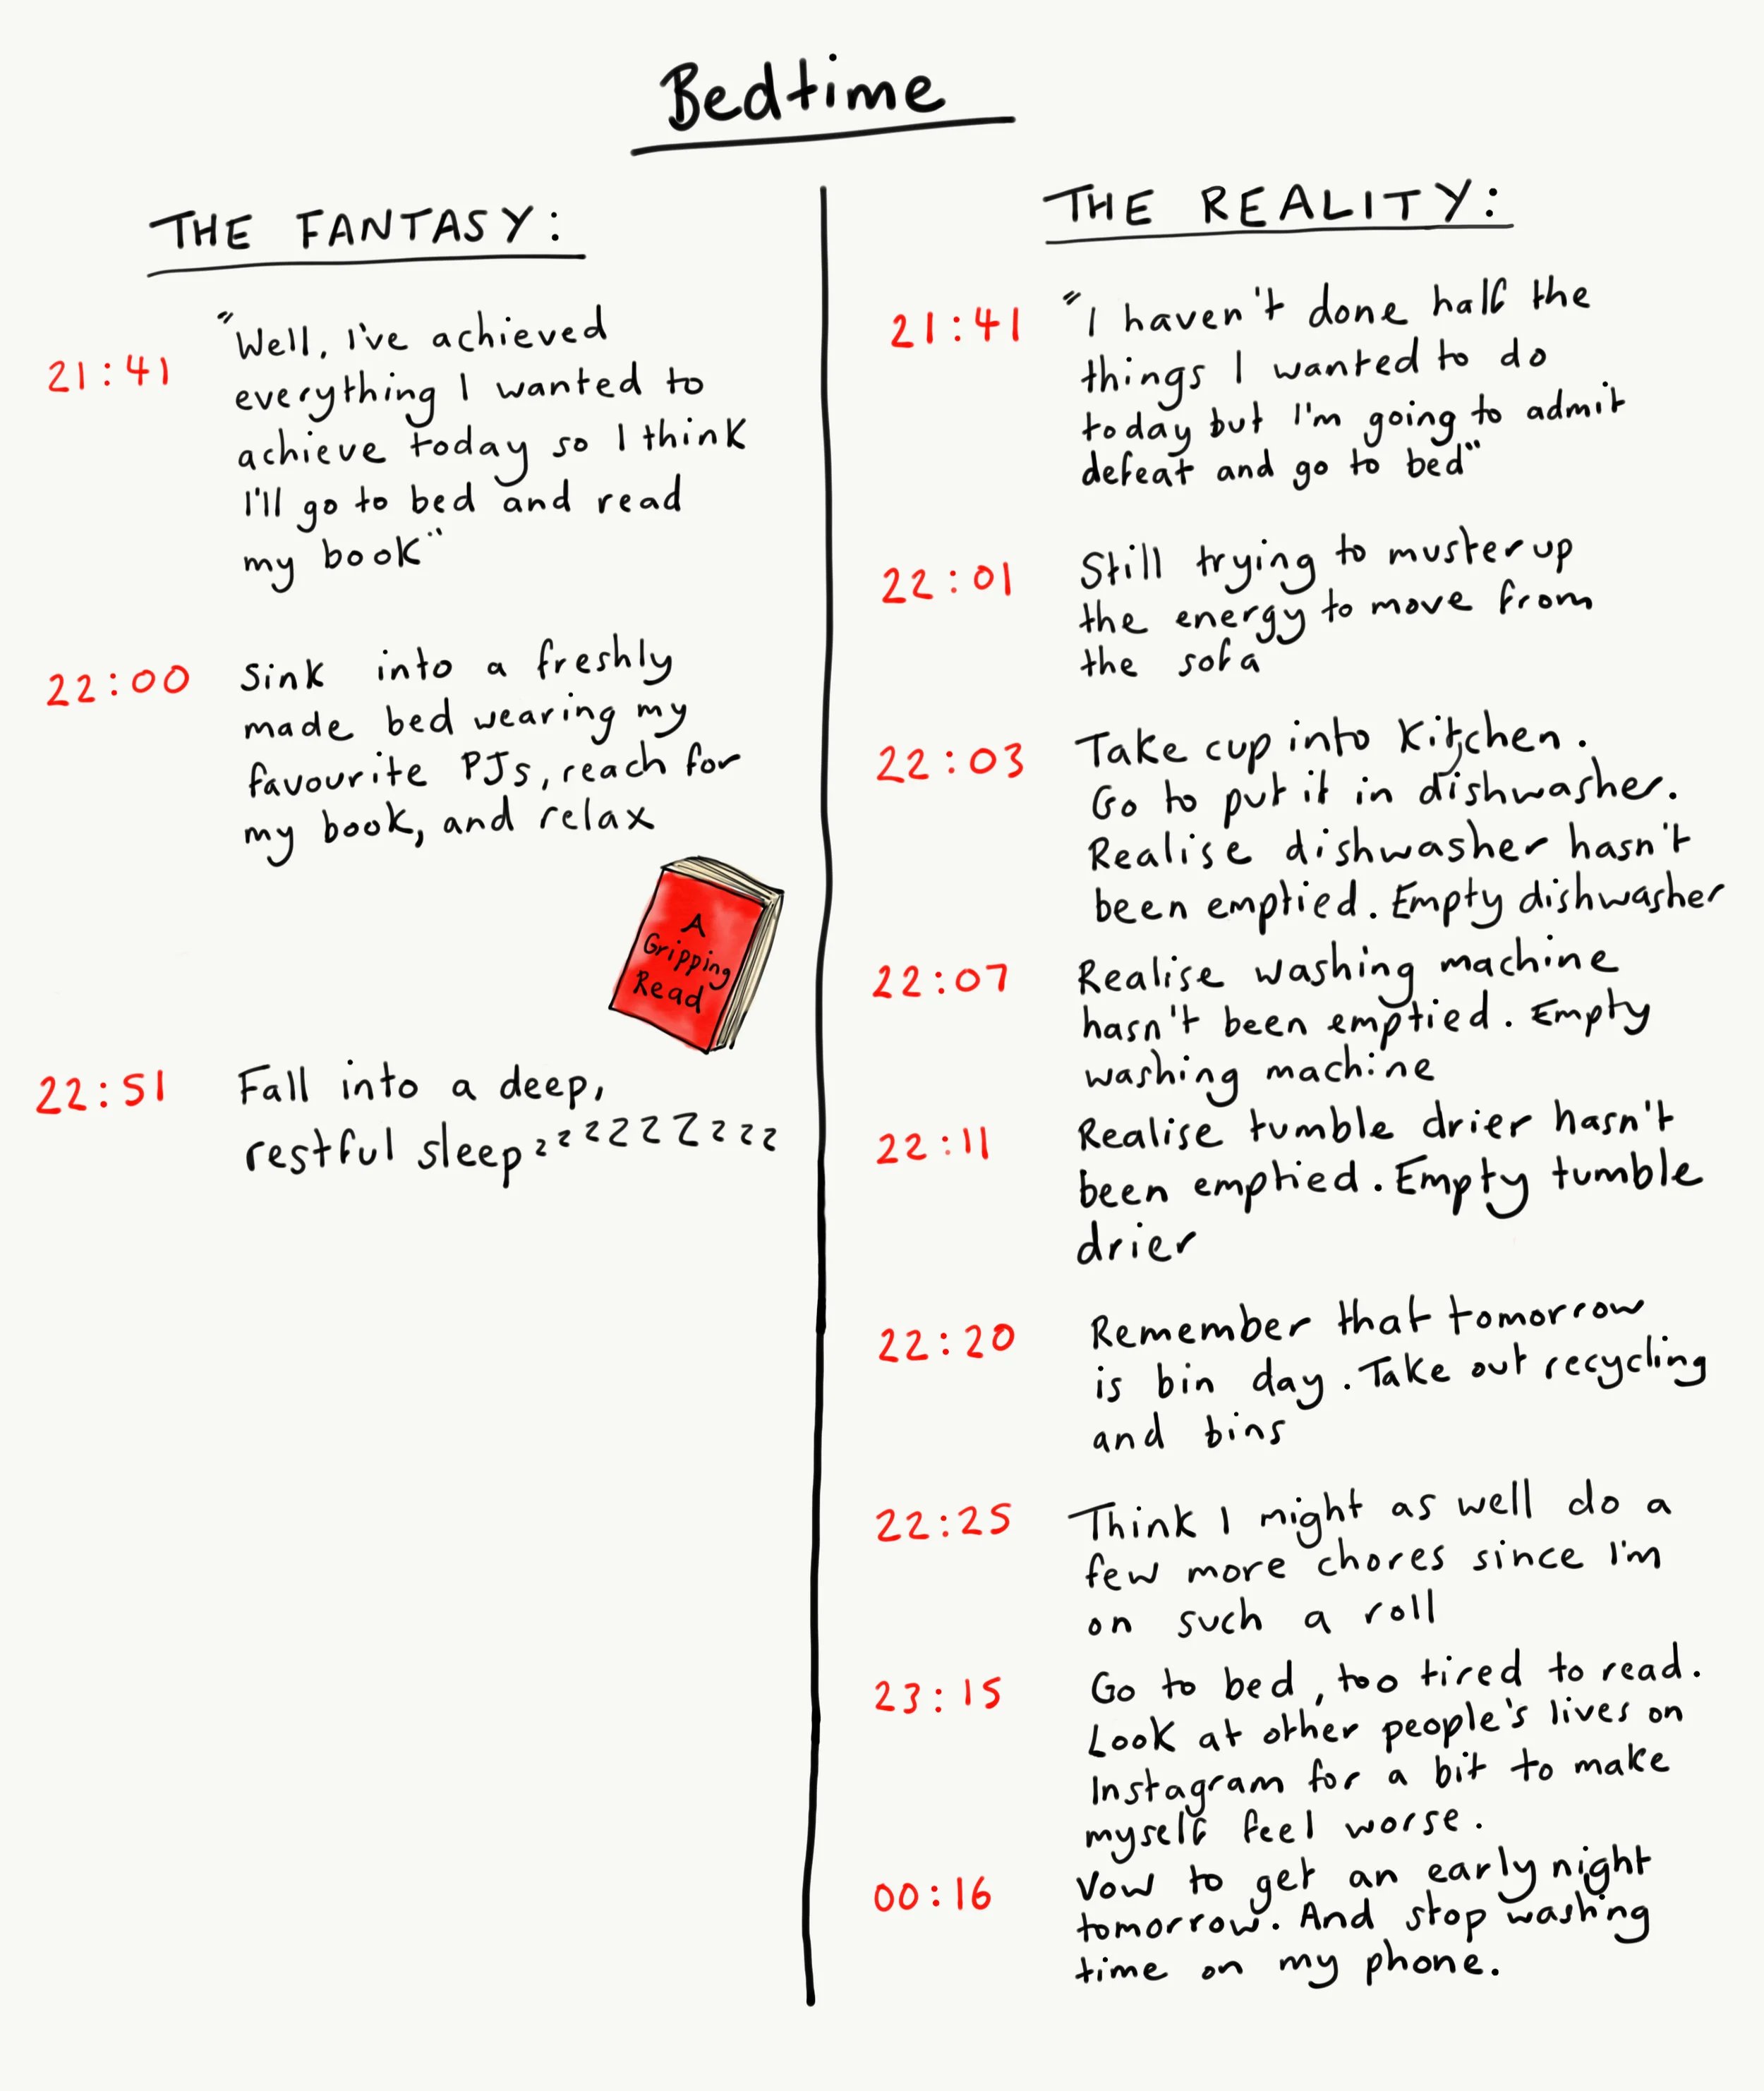 Bedtime
THE FANTASY:
21:41
"Well, I've achieved
everything I wanted to
achieve today so I think
I'll go to bed and read
my book"
22:00
Sink into a freshly
made bed wearing my
favourite PJs, reach for
my book, and relax
A
Gripping
Read
22:51
Fall into a deep,
restful sleepzzzzzzzzzz
THE REALITY:
21:41
"I haven't done half the
things I wanted to do
today but I'm going to admit
defeat and go to bed"
22:01
Still trying to muster up
the energy to move from
the sofa
22:03
Take cup into kitchen.
Go to put it in dishwasher.
Realise dishwasher hasn't
been emptied. Empty dishwasher
22:07
Realise washing machine
hasn't been emptied. Empty
washing machine
22:11
Realise tumble drier hasn't
been emptied. Empty tumble
drier
22:20
Remember that tomorrow
is bin day. Take out recycling
and bins
22:25
Think I might as well do a
few more chores since I'm
on such a roll
23:15
Go to bed, too tired to read.
Look at other people's lives on
Instagram for a bit to make
myself feel worse.
00:16
Vow to get an early night
tomorrow. And stop washing
time on my phone.